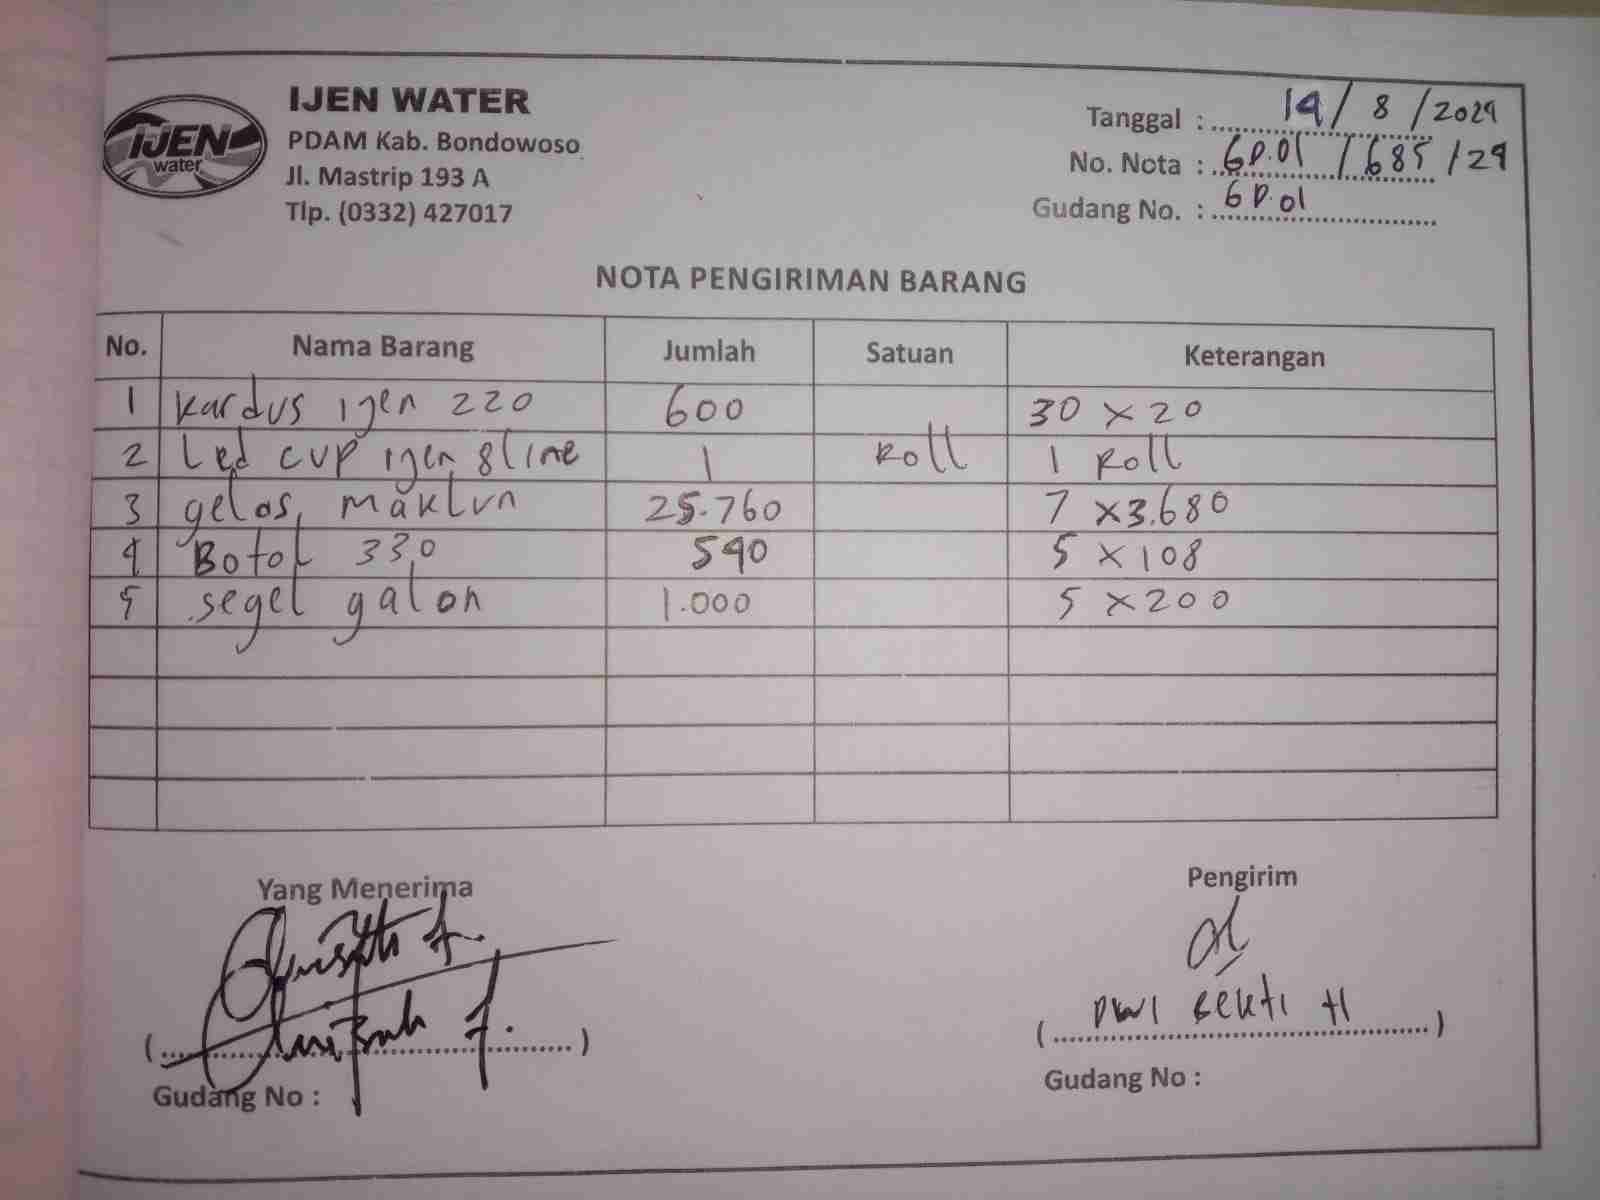 IJEN WATER
IJEN
water
PDAM Kab. Bondowoso
Jl. Mastrip 193 A
Tlp. (0332) 427017
Tanggal : 14/8/2024
No. Nota : GD.01/685/24
Gudang No. : GD.01
NOTA PENGIRIMAN BARANG
No. Nama Barang Jumlah Satuan Keterangan
1 kardus ijen 220 600 30 x 20
2 Led cup ijen 8 line 1 Roll 1 Roll
3 gelas maklun 25.760 7 x 3.680
4 Botol 330 540 5 x 108
5 segel galon 1.000 5 x 200
Yang Menerima
Pengirim
Dwi Bekti H
Gudang No :
Gudang No :